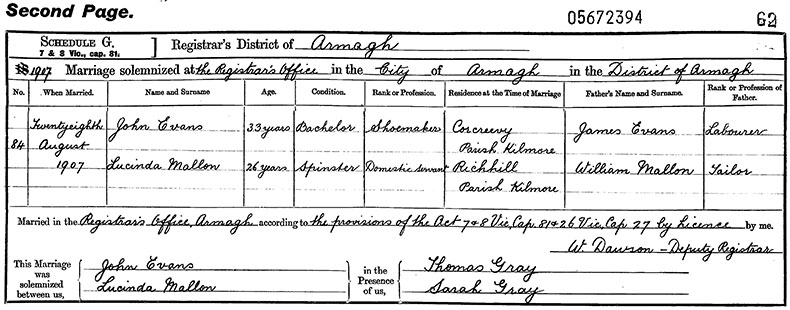 Second Page.
05672394
62
SCHEDULE G.
7 & 8 Vic., cap. 81.
Registrar's District of Armagh
1907 Marriage solemnized at the Registrar's Office in the City of Armagh in the District of Armagh
No. When Married. Name and Surname Age. Condition. Rank or Profession. Residence at the Time of Marriage Father's Name and Surname. Rank or Profession of Father.
84 Twentyeighth August 1907
John Evans 33 years Bachelor Shoemaker Corcreevy Parish Kilmore James Evans Labourer
Lucinda Mallon 26 years Spinster Domestic servant Richhill Parish Kilmore William Mallon Tailor
Married in the Registrar's Office, Armagh according to the provisions of the Act 7 & 8 Vic, Cap. 81 & 26 Vic, Cap 27 by Licence by me.
W. Dawson - Deputy Registrar
This Marriage was solemnized between us,
John Evans
Lucinda Mallon
in the Presence of us,
Thomas Gray
Sarah Gray